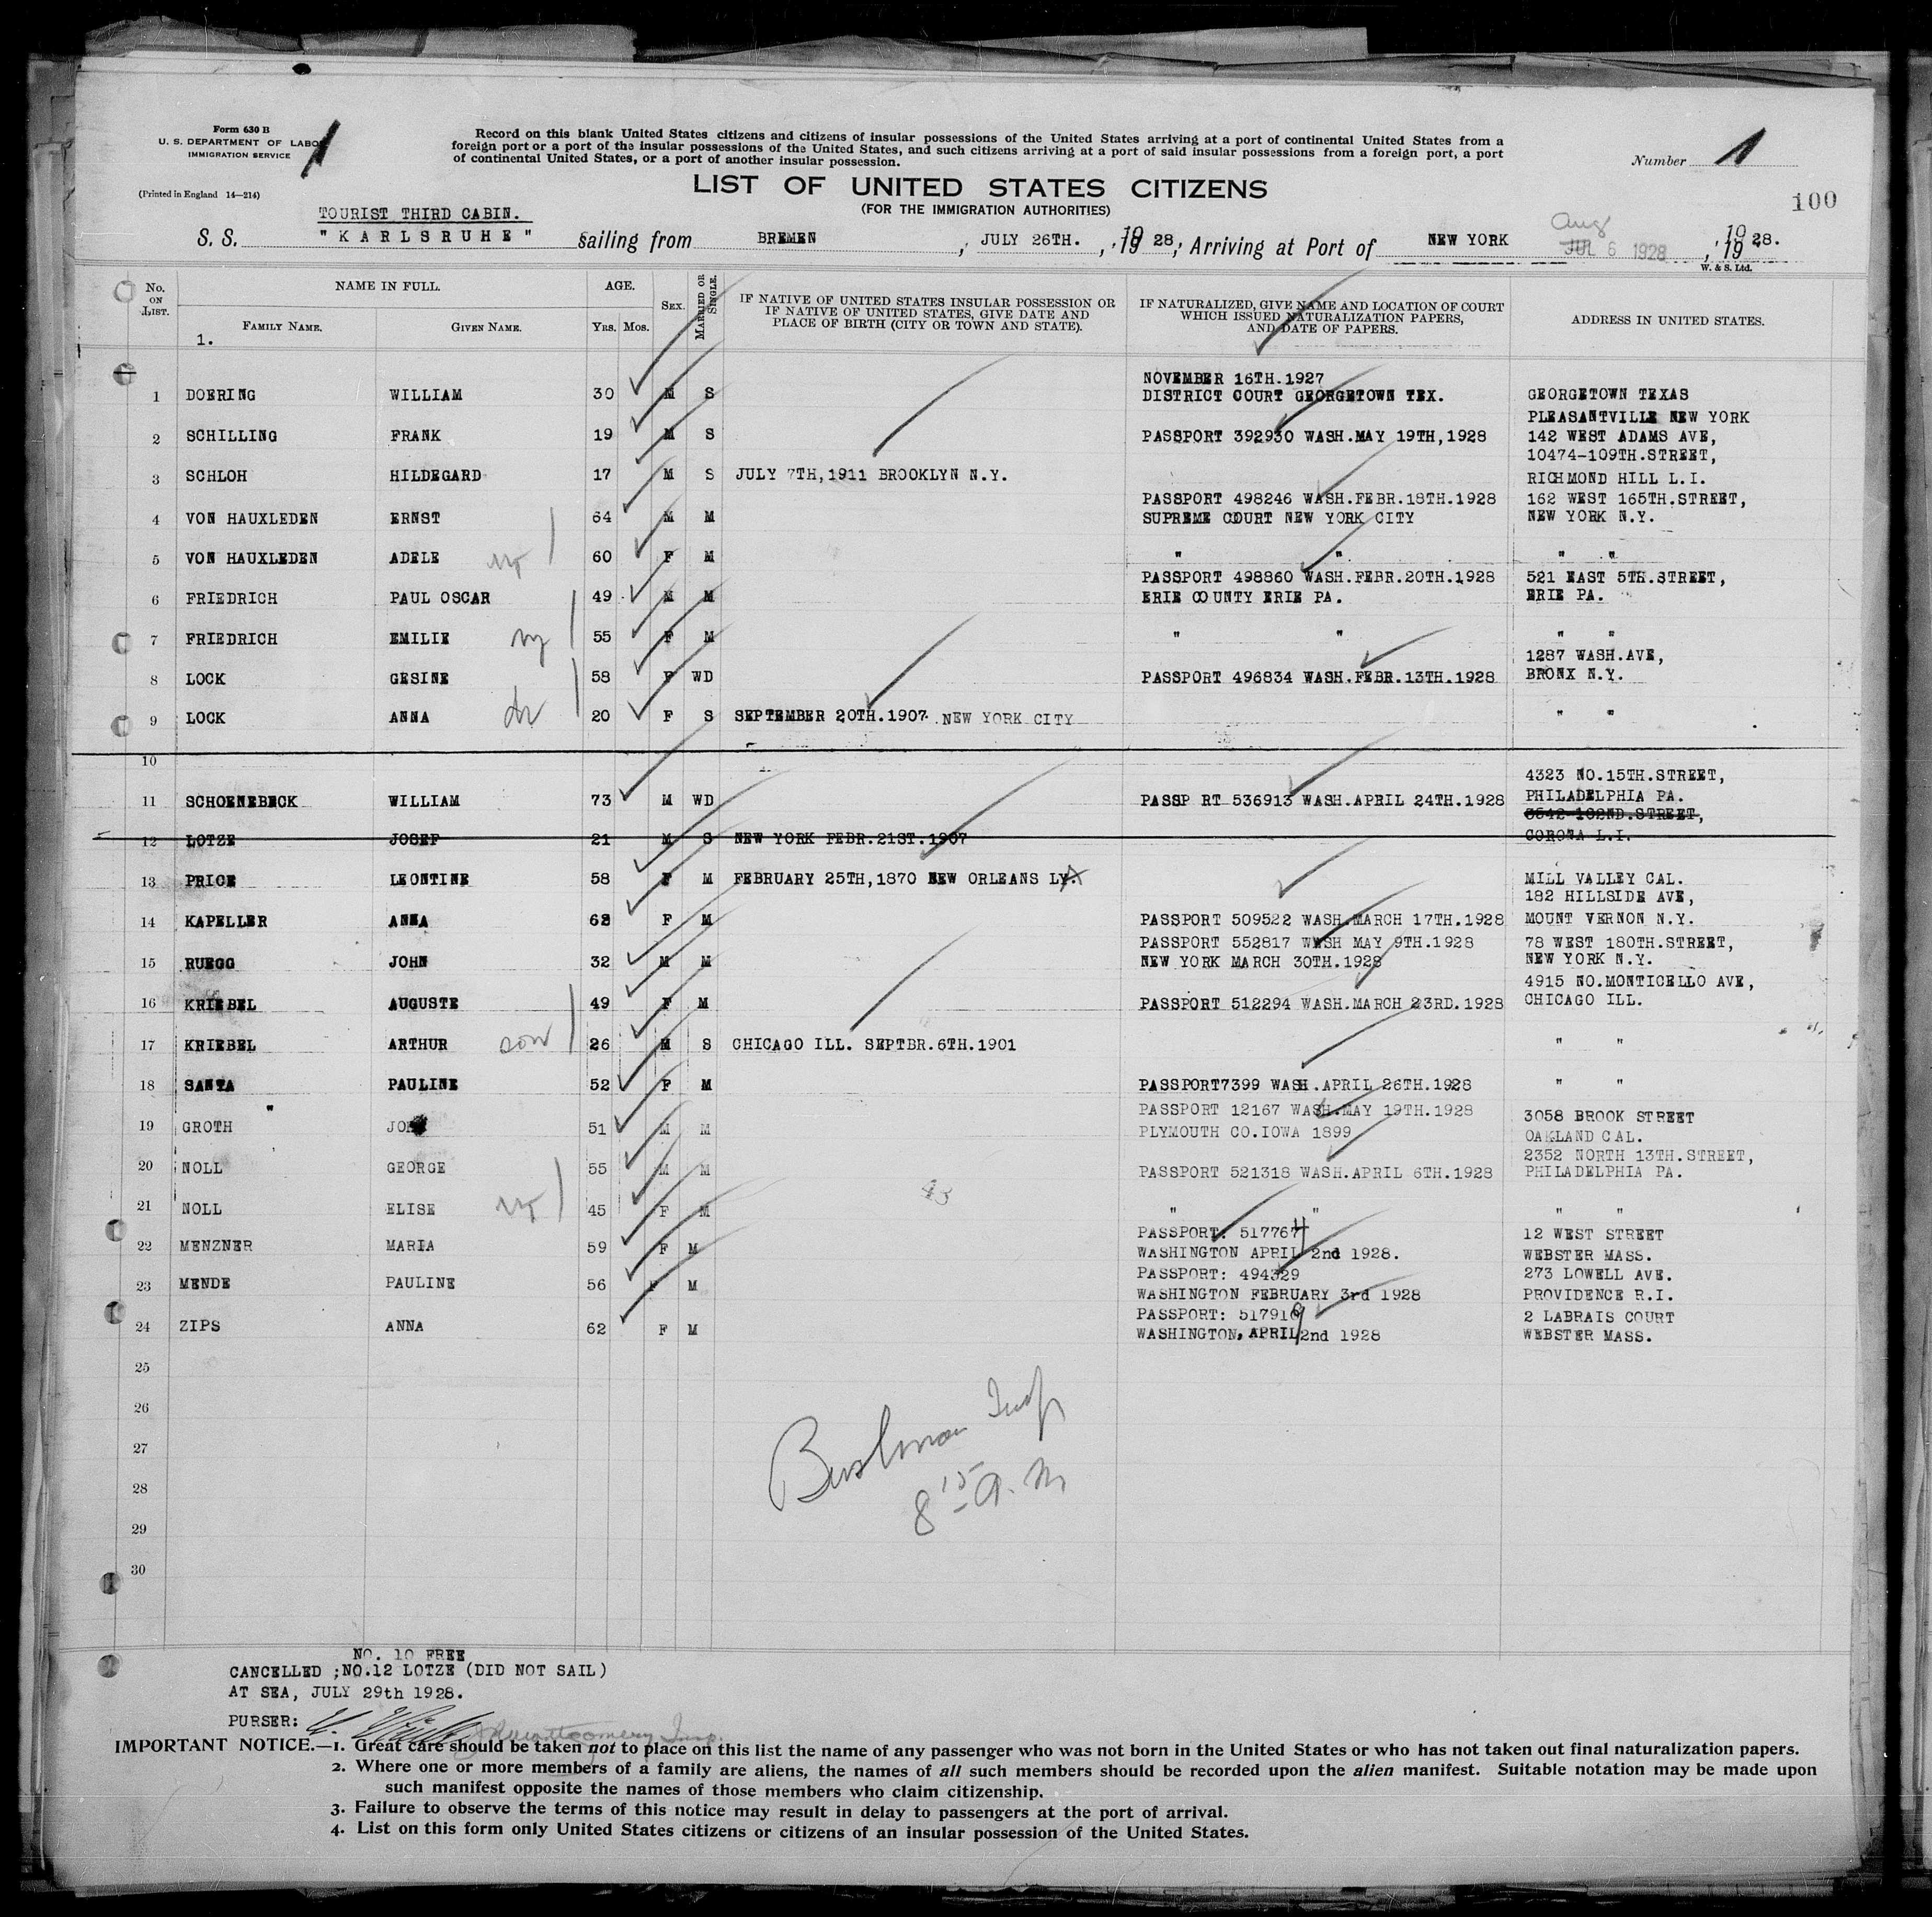 Form 630 B
U. S. DEPARTMENT OF LABOR
IMMIGRATION SERVICE
(Printed in England 14—214)
1
Record on this blank United States citizens and citizens of insular possessions of the United States arriving at a port of continental United States from a
foreign port or a port of the insular possessions of the United States, and such citizens arriving at a port of said insular possessions from a foreign port, a port
of continental United States, or a port of another insular possession.
Number 1
LIST OF UNITED STATES CITIZENS
(FOR THE IMMIGRATION AUTHORITIES)
100
TOURIST THIRD CABIN.
S. S. "KARLSRUHE" sailing from BREMEN, JULY 26TH., 1928; Arriving at Port of NEW YORK Aug JUL 6 1928, 1928.
W. & S. Ltd.
No. ON LIST. NAME IN FULL. AGE. SEX. MARRIED OR SINGLE. IF NATIVE OF UNITED STATES INSULAR POSSESSION OR IF NATIVE OF UNITED STATES, GIVE DATE AND PLACE OF BIRTH (CITY OR TOWN AND STATE). IF NATURALIZED, GIVE NAME AND LOCATION OF COURT WHICH ISSUED NATURALIZATION PAPERS, AND DATE OF PAPERS. ADDRESS IN UNITED STATES.
FAMILY NAME. GIVEN NAME. YRS. MOS.
1.
NOVEMBER 16TH.1927
1 DOERING WILLIAM 30 M S DISTRICT COURT GEORGETOWN TEX. GEORGETOWN TEXAS
PLEASANTVILLE NEW YORK
2 SCHILLING FRANK 19 M S PASSPORT 392930 WASH.MAY 19TH,1928 142 WEST ADAMS AVE,
10474-109TH.STREET,
3 SCHLOH HILDEGARD 17 M S JULY 7TH,1911 BROOKLYN N.Y. RICHMOND HILL L.I.
PASSPORT 498246 WASH.FEBR.18TH.1928 162 WEST 165TH.STREET,
4 VON HAUXLEDEN ERNST 64 M M SUPREME COURT NEW YORK CITY NEW YORK N.Y.
5 VON HAUXLEDEN ADELE 60 F M " " " "
PASSPORT 498860 WASH.FEBR.20TH.1928 521 EAST 5TH.STREET,
6 FRIEDRICH PAUL OSCAR 49 M M ERIE COUNTY ERIE PA. ERIE PA.
7 FRIEDRICH EMILIE 55 F M " " " "
1287 WASH.AVE,
8 LOCK GESINE 58 F WD PASSPORT 496834 WASH.FEBR.13TH.1928 BRONX N.Y.
9 LOCK ANNA 20 F S SEPTEMBER 20TH.1907 NEW YORK CITY " "
10
4323 NO.15TH.STREET,
11 SCHOENEBECK WILLIAM 73 M WD PASSP RT 536913 WASH.APRIL 24TH.1928 PHILADELPHIA PA.
3542-102ND.STREET,
12 LOTZE JOSEF 21 M S NEW YORK FEBR.21ST.1907 CORONA L.I.
13 PRICE LEONTINE 58 F M FEBRUARY 25TH,1870 NEW ORLEANS LA. MILL VALLEY CAL.
182 HILLSIDE AVE,
14 KAPELLER ANNA 62 F M PASSPORT 509522 WASH.MARCH 17TH.1928 MOUNT VERNON N.Y.
PASSPORT 552817 WASH MAY 9TH.1928 78 WEST 180TH.STREET,
15 RUEGG JOHN 32 M M NEW YORK MARCH 30TH.1928 NEW YORK N.Y.
4915 NO.MONTICELLO AVE,
16 KRIEBEL AUGUSTE 49 F M PASSPORT 512294 WASH.MARCH 23RD.1928 CHICAGO ILL.
17 KRIEBEL ARTHUR son 26 M S CHICAGO ILL. SEPTBR.6TH.1901 " "
18 SANTA PAULINE 52 F M PASSPORT7399 WASH.APRIL 26TH.1928 " "
" PASSPORT 12167 WASH.MAY 19TH.1928 3058 BROOK STREET
19 GROTH 51 M M PLYMOUTH CO.IOWA 1899 OAKLAND CAL.
2352 NORTH 13TH.STREET,
20 NOLL GEORGE 55 M M PASSPORT 521318 WASH.APRIL 6TH.1928 PHILADELPHIA PA.
43
21 NOLL ELISE 45 F M " " " "
PASSPORT: 517764 12 WEST STREET
22 MENZNER MARIA 59 F M WASHINGTON APRIL 2nd 1928. WEBSTER MASS.
PASSPORT: 494329 273 LOWELL AVE.
23 MENDE PAULINE 56 F M WASHINGTON FEBRUARY 3rd 1928 PROVIDENCE R.I.
PASSPORT: 517919 2 LABRAIS COURT
24 ZIPS ANNA 62 F M WASHINGTON, APRIL 2nd 1928 WEBSTER MASS.
25
26
27
28
29
30
Bushman Insp
8 15 a.m
NO. 10 FREE
CANCELLED ;NO.12 LOTZE (DID NOT SAIL)
AT SEA, JULY 29th 1928.
PURSER:
Montgomery Insp.
IMPORTANT NOTICE.—1. Great care should be taken not to place on this list the name of any passenger who was not born in the United States or who has not taken out final naturalization papers.
2. Where one or more members of a family are aliens, the names of all such members should be recorded upon the alien manifest. Suitable notation may be made upon
such manifest opposite the names of those members who claim citizenship.
3. Failure to observe the terms of this notice may result in delay to passengers at the port of arrival.
4. List on this form only United States citizens or citizens of an insular possession of the United States.